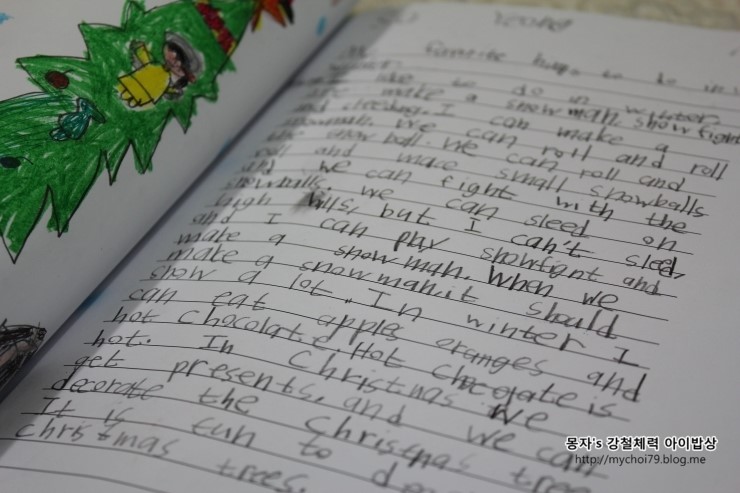 My favorite things to do in
winter.
I like to do in winter
are make a snowman, snow fight
and sledding. I can make a
snowball. We can roll and roll
the snow ball. We can roll and
roll and make small snowballs
and we can fight with the
snowballs. We can sleed on
high hills, but I can't sleed,
and I can play snowfight and
make a snowman. When we
make a snowman, it should
snow a lot. In winter I
can eat apples oranges and
hot chocolate. Hot chocolate is
hot. In Christmas we
get presents, and we can
decorate the christmas tree
It is fun to
christmas trees.
몽자's 강철체력 아이밥상
http://mychoi79.blog.me